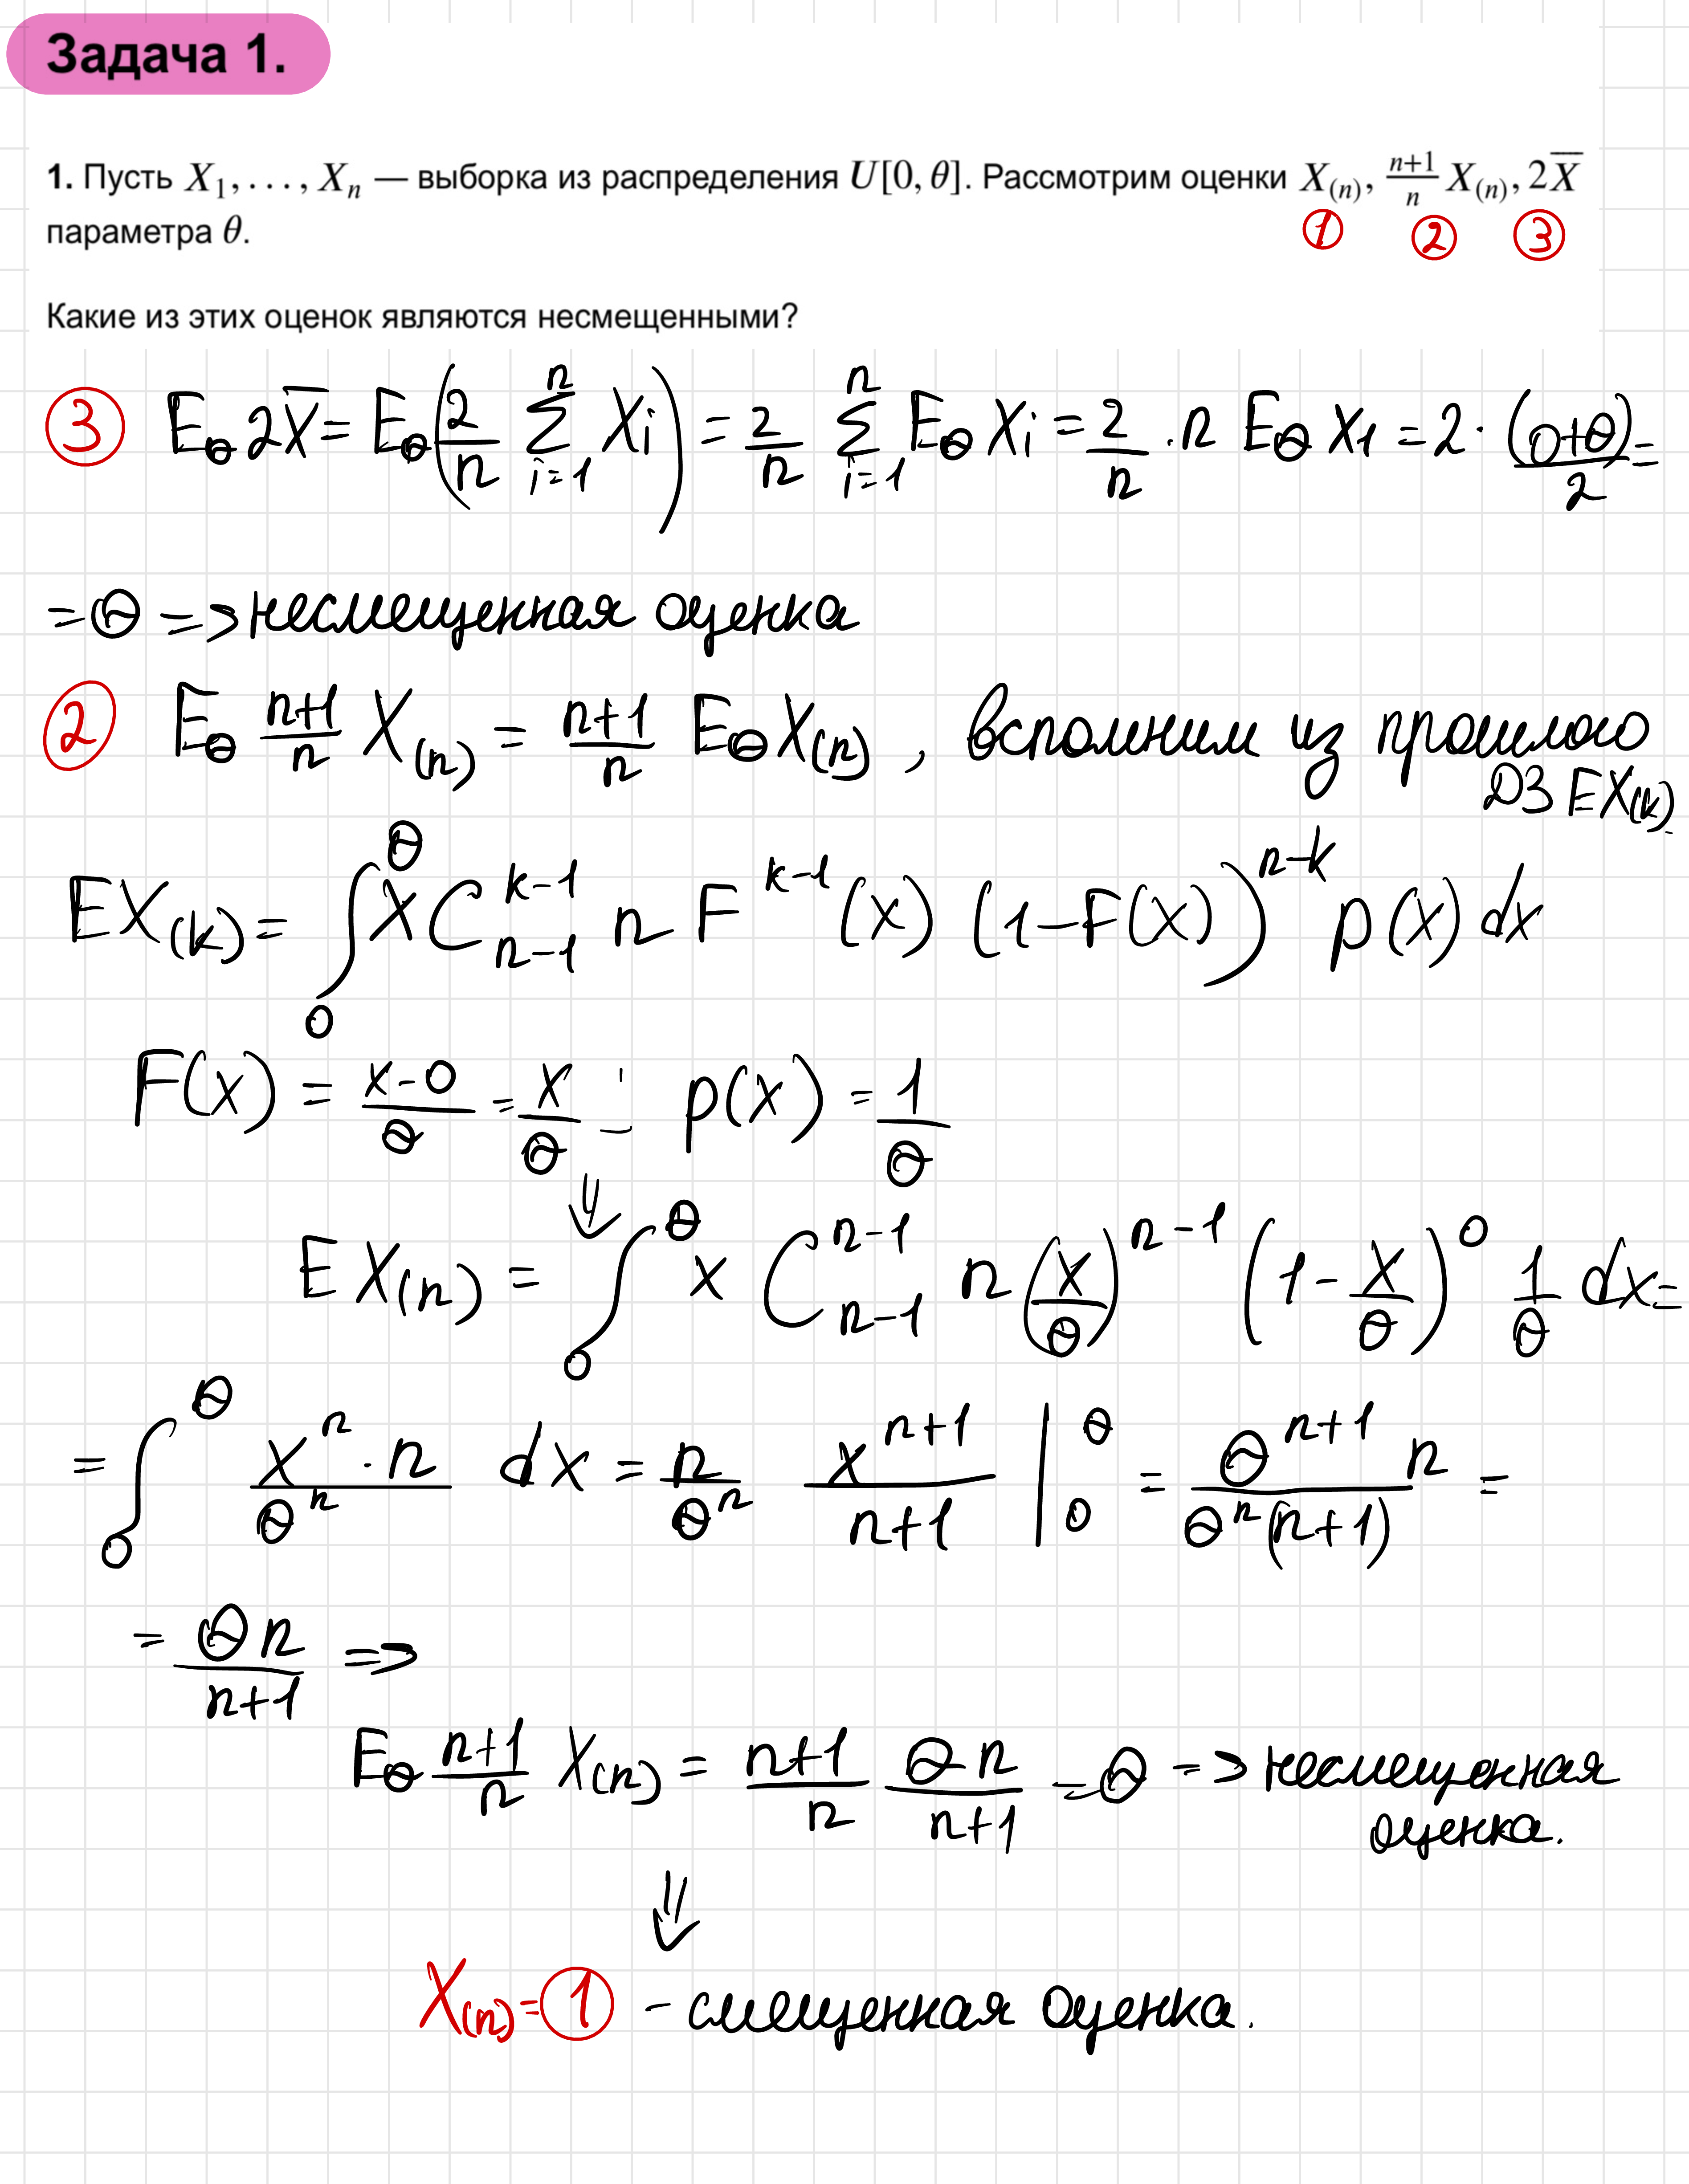 Задача 1.
1. Пусть X₁, . . . , Xₙ — выборка из распределения U[0, θ]. Рассмотрим оценки X₍ₙ₎, (n+1)/n X₍ₙ₎, 2X̅
параметра θ.
① ② ③
Какие из этих оценок являются несмещенными?
③ E_θ 2X̅ = E_θ(2/n Σ_{i=1}^{n} Xi) = 2/n Σ_{i=1}^{n} E_θ Xi = 2/n · n E_θ X₁ = 2 · (0+θ)/2 =
= θ => несмещенная оценка
② E_θ (n+1)/n X₍ₙ₎ = (n+1)/n E_θ X₍ₙ₎ , вспомним из прошлого
ДЗ EX₍ₖ₎
EX₍ₖ₎ = ∫_0^θ x C_{n-1}^{k-1} n F^{k-1}(x) (1-F(x))^{n-k} p(x) dx
F(x) = (x-0)/θ = x/θ ; p(x) = 1/θ
⇓
EX₍ₙ₎ = ∫_0^θ x C_{n-1}^{n-1} n (x/θ)^{n-1} (1 - x/θ)^0 1/θ dx =
= ∫_0^θ (x^n · n)/θ^n dx = n/θ^n x^{n+1}/(n+1) |_0^θ = (θ^{n+1} n)/(θ^n(n+1)) =
= θn/(n+1) =>
E_θ (n+1)/n X₍ₙ₎ = (n+1)/n θn/(n+1) = θ => несмещенная
оценка.
⇓
X₍ₙ₎ = ① - смещенная оценка.